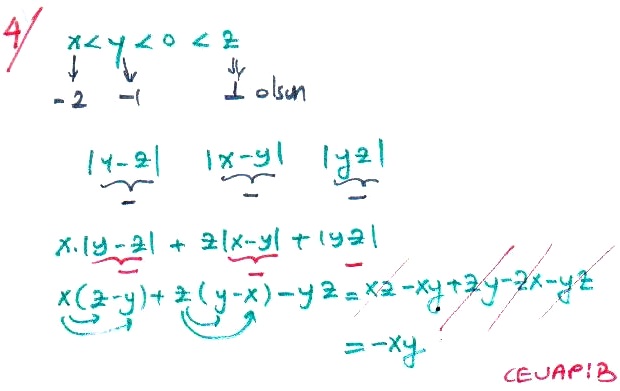 4/ x < y < 0 < z
↓ ↓ ↓
-2 -1 1 olsun
|y-z| |x-y| |yz|
- - -
x.|y-z| + z|x-y| + |yz|
- - -
x(z-y) + z(y-x) - yz = xz - xy + zy - zx - yz
= -xy
CEVAP: B